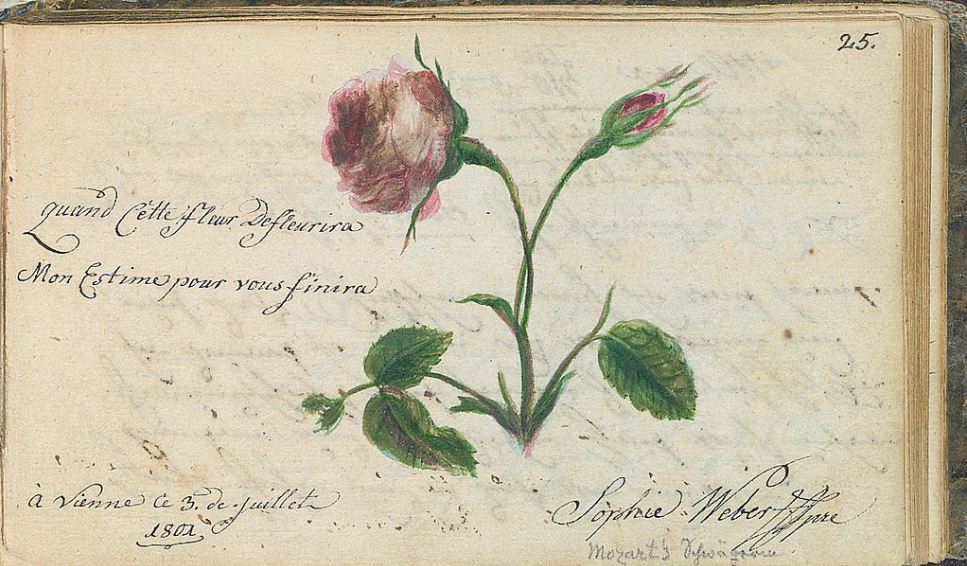 25.
quand Cètte fleur Defleurira
Mon Estime pour vous finira
à Vienne ce 3. de juillet
1801
Sophie Weber
Mozart's Schwägerin.